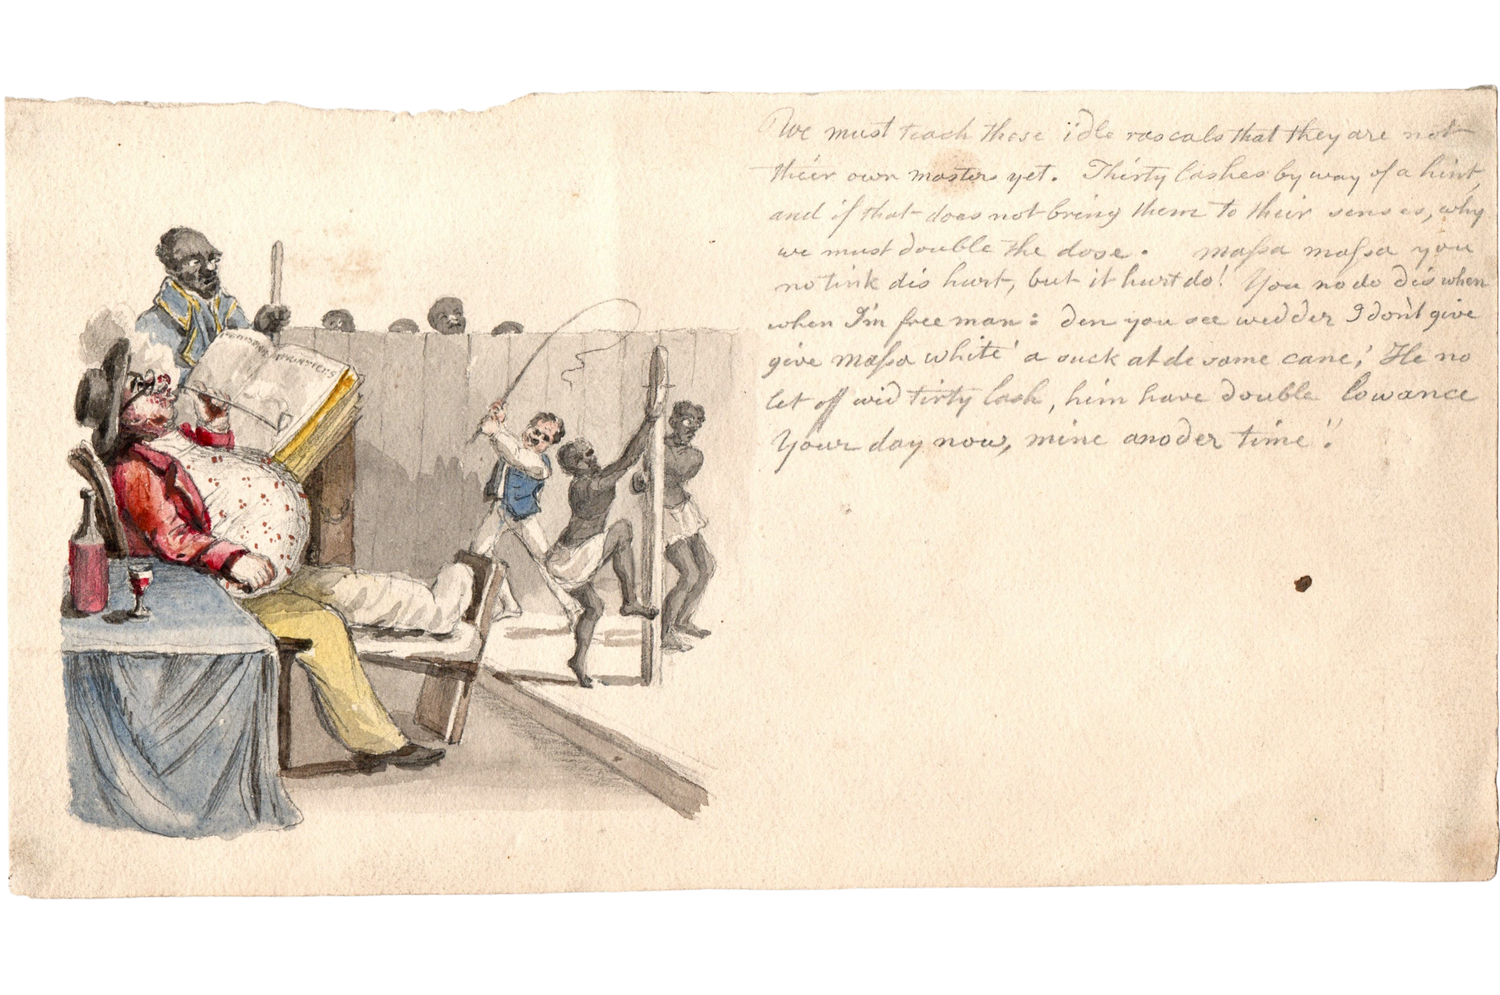 We must teach these idle rascals that they are not
their own masters yet. Thirty lashes by way of a hint,
and if that does not bring them to their senses, why
we must double the dose. Maſsa maſsa you
no tink dis hurt, but it hurt do! You no do dis when
when I'm free man: den you see wedder I don't give
give Maſsa white' a suck at de same cane; He no
let off wid tirty lash, him have double lowance
Your day now, mine anoder time"!